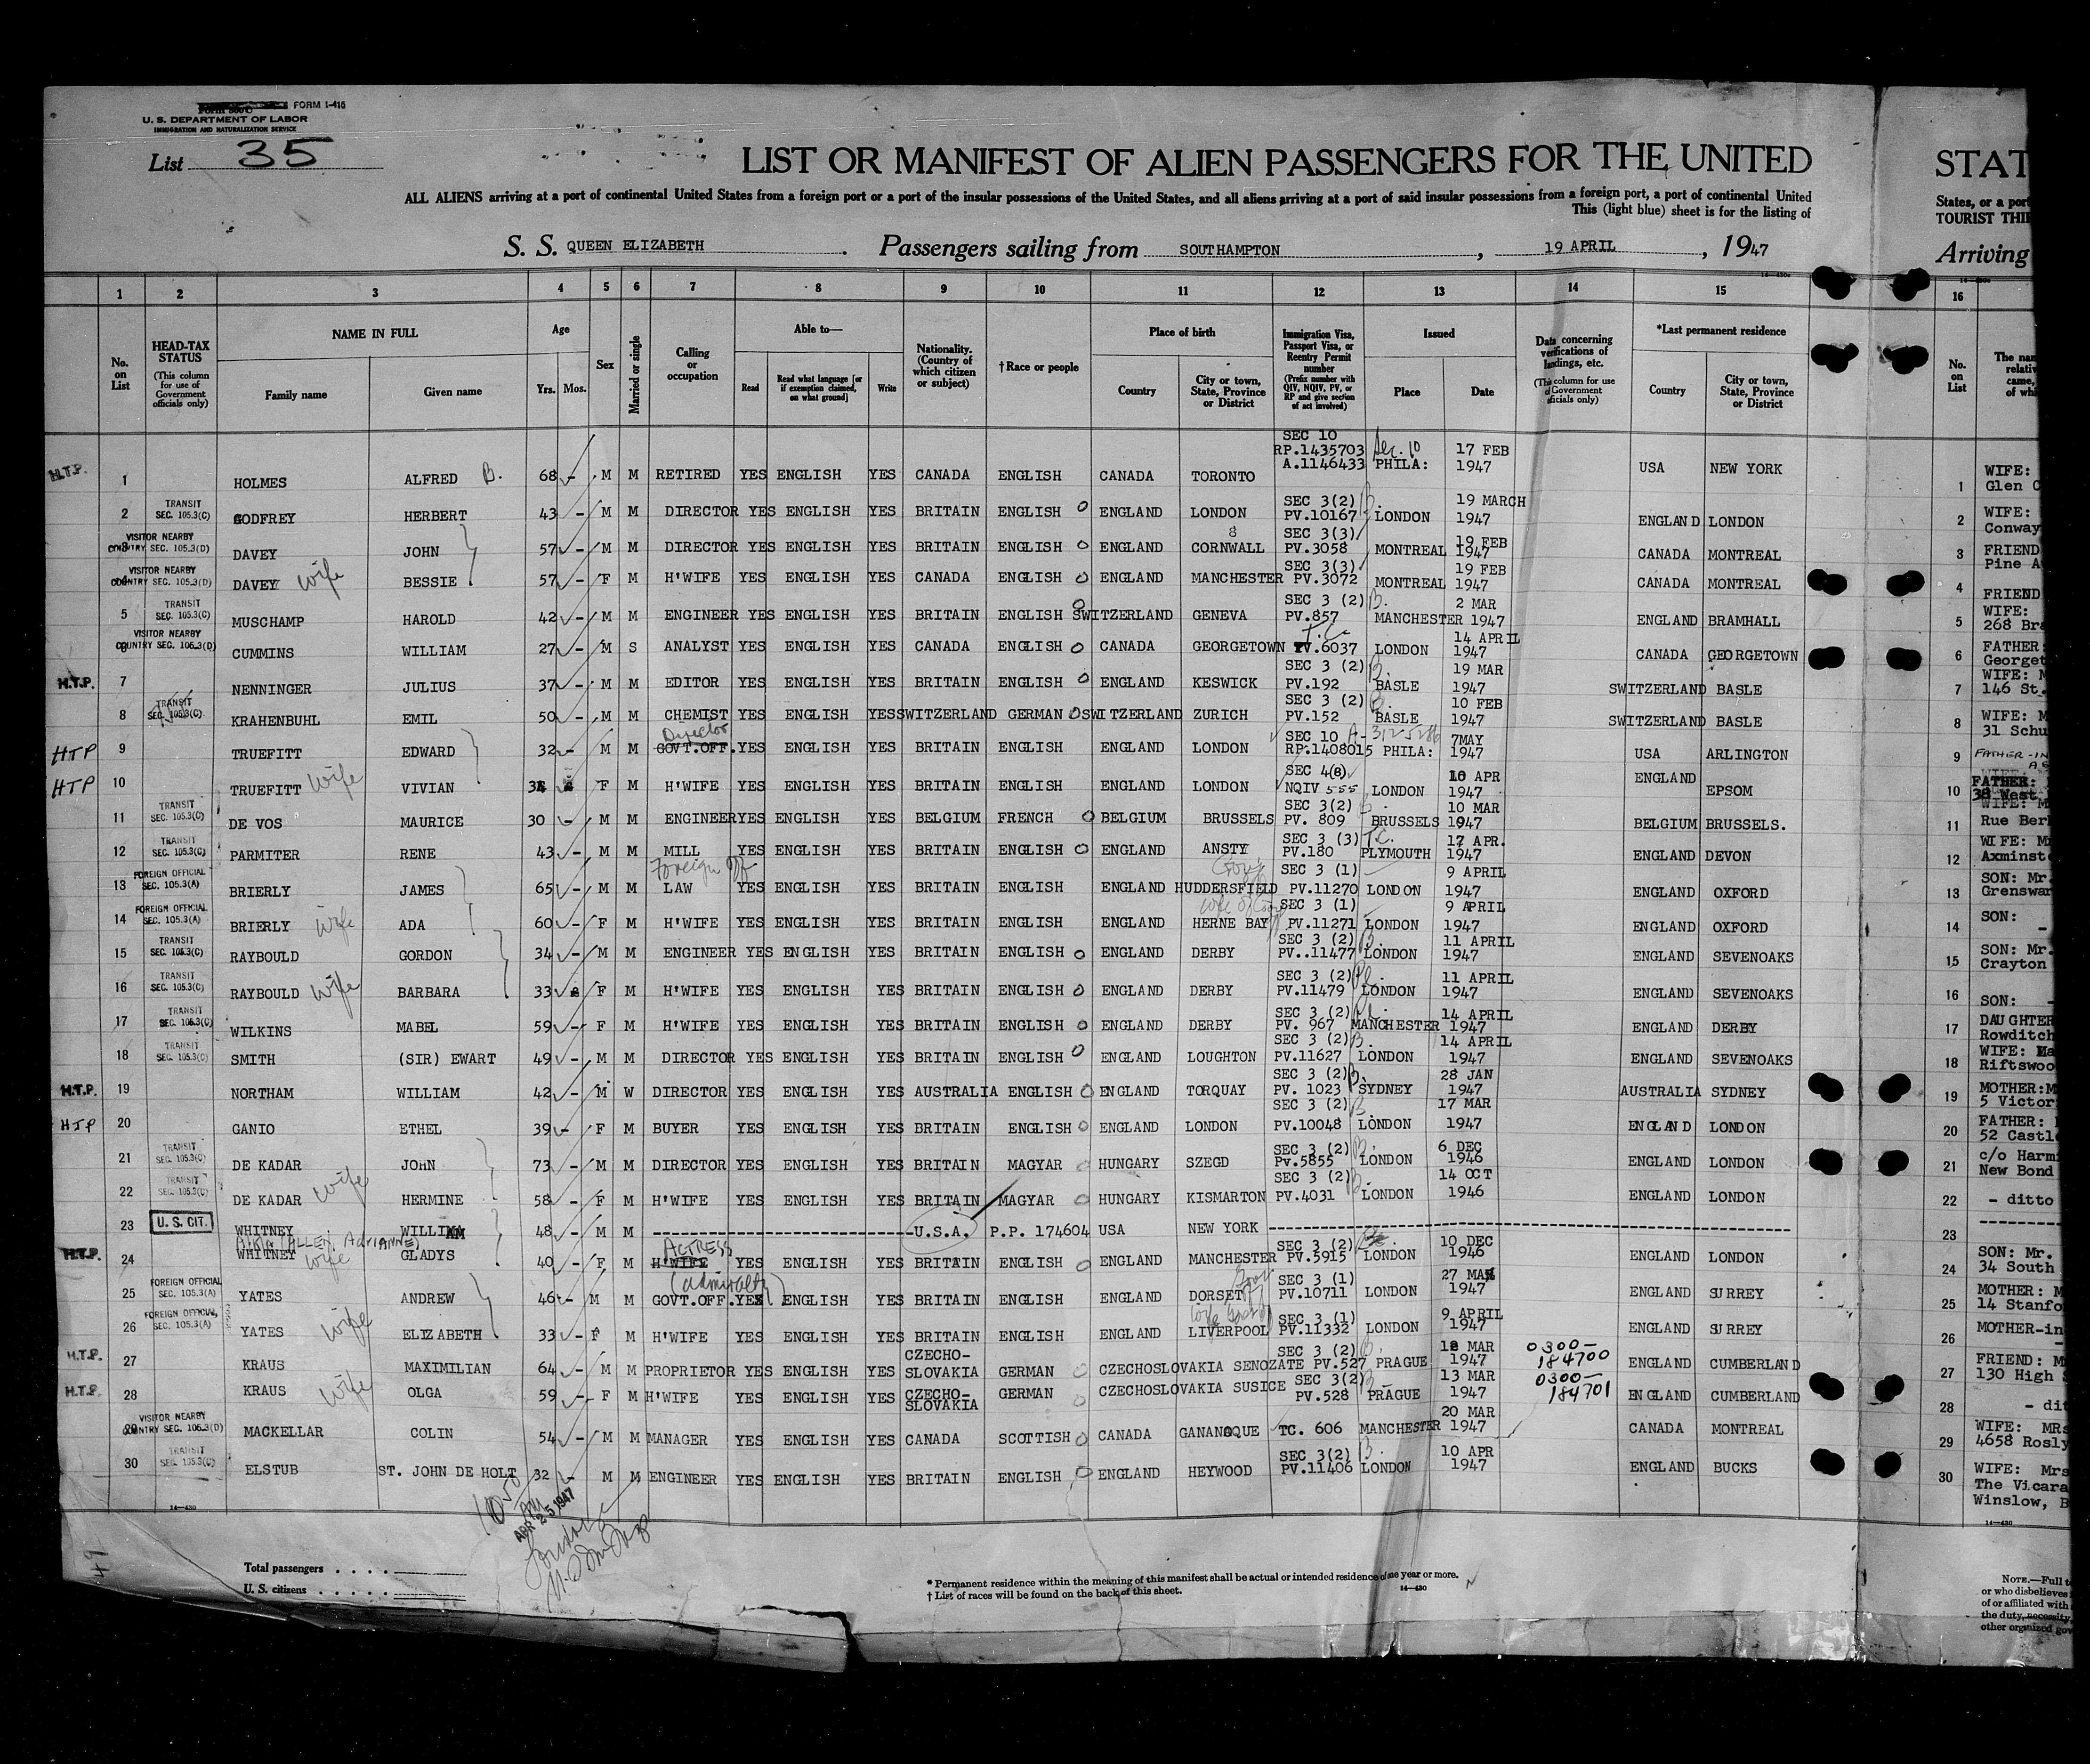 FORM I-415
U. S. DEPARTMENT OF LABOR
IMMIGRATION AND NATURALIZATION SERVICE
List 35
LIST OR MANIFEST OF ALIEN PASSENGERS FOR THE UNITED STAT
ALL ALIENS arriving at a port of continental United States from a foreign port or a port of the insular possessions of the United States, and all aliens arriving at a port of said insular possessions from a foreign port, a port of continental United States, or a port
This (light blue) sheet is for the listing of TOURIST THIR
S. S. QUEEN ELIZABETH. Passengers sailing from SOUTHAMPTON, 19 APRIL, 1947 Arriving
1 2 3 4 5 6 7 8 9 10 11 12 13 14 15 16
No. on List
HEAD-TAX STATUS (This column for use of Government officials only)
NAME IN FULL Family name Given name
Age Yrs. Mos.
Sex
Married or single
Calling or occupation
Able to— Read Read what language [or if exemption claimed, on what ground] Write
Nationality. (Country of which citizen or subject)
†Race or people
Place of birth Country City or town, State, Province or District
Immigration Visa, Passport Visa, or Reentry Permit number (Prefix number with QIV, NQIV, PV, or RP and give section of act involved)
Issued Place Date
Data concerning verifications of landings, etc. (This column for use of Government officials only)
*Last permanent residence Country City or town, State, Province or District
No. on List
H.T.P. 1 HOLMES ALFRED B. 68 - M M RETIRED YES ENGLISH YES CANADA ENGLISH CANADA TORONTO SEC 10 RP.1435703 A.1146433 Sec. 10 PHILA: 17 FEB 1947 USA NEW YORK 1 WIFE: Glen C
2 TRANSIT SEC. 105.3(C) GODFREY HERBERT 43 - M M DIRECTOR YES ENGLISH YES BRITAIN ENGLISH ENGLAND LONDON SEC 3(2) PV.10167 B. LONDON 19 MARCH 1947 ENGLAND LONDON 2 WIFE: Conway
3 VISITOR NEARBY COUNTRY SEC. 105.3(D) DAVEY JOHN 57 - M M DIRECTOR YES ENGLISH YES BRITAIN ENGLISH ENGLAND CORNWALL SEC 3(3) PV.3058 MONTREAL 19 FEB 1947 CANADA MONTREAL 3 FRIEND Pine A
4 VISITOR NEARBY COUNTRY SEC. 105.3(D) DAVEY wife BESSIE 57 - F M H'WIFE YES ENGLISH YES CANADA ENGLISH ENGLAND MANCHESTER SEC 3(3) PV.3072 MONTREAL 19 FEB 1947 CANADA MONTREAL 4 FRIEND
5 TRANSIT SEC. 105.3(C) MUSCHAMP HAROLD 42 - M M ENGINEER YES ENGLISH YES BRITAIN ENGLISH SWITZERLAND GENEVA SEC 3 (2) PV.857 B. MANCHESTER 2 MAR 1947 ENGLAND BRAMHALL 5 WIFE: 268 Bra
6 VISITOR NEARBY COUNTRY SEC. 105.3(D) CUMMINS WILLIAM 27 - M S ANALYST YES ENGLISH YES CANADA ENGLISH CANADA GEORGETOWN T.C. .6037 LONDON 14 APRIL 1947 CANADA GEORGETOWN 6 FATHER: Georget
H.T.P. 7 NENNINGER JULIUS 37 - M M EDITOR YES ENGLISH YES BRITAIN ENGLISH ENGLAND KESWICK SEC 3 (2) PV.192 B. BASLE 19 MAR 1947 SWITZERLAND BASLE 7 WIFE: M 146 St.
8 TRANSIT SEC. 105.3(C) KRAHENBUHL EMIL 50 - M M CHEMIST YES ENGLISH YES SWITZERLAND GERMAN SWITZERLAND ZURICH SEC 3 (2) PV.152 B. BASLE 10 FEB 1947 SWITZERLAND BASLE 8 WIFE: M 31 Schu
HTP 9 TRUEFITT EDWARD 32 - M M Director GOVT.OFF. YES ENGLISH YES BRITAIN ENGLISH ENGLAND LONDON SEC 10 RP.1408015 PHILA: 7MAY 1947 USA ARLINGTON 9 FATHER-IN
HTP 10 TRUEFITT wife VIVIAN F M H'WIFE YES ENGLISH YES BRITAIN ENGLISH ENGLAND LONDON SEC 4(B) NQIV 555 LONDON 10 APR 1947 ENGLAND EPSOM 10 FATHER: 38 West
11 TRANSIT SEC. 105.3(C) DE VOS MAURICE 30 - M M ENGINEER YES ENGLISH YES BELGIUM FRENCH BELGIUM BRUSSELS SEC 3(2) PV. 809 B. BRUSSELS 10 MAR 1947 BELGIUM BRUSSELS. 11 WIFE: M Rue Ber
12 TRANSIT SEC. 105.3(C) PARMITER RENE 43 - M M MILL YES ENGLISH YES BRITAIN ENGLISH ENGLAND ANSTY SEC 3 (3) PV.180 T.C. PLYMOUTH 17 APR. 1947 ENGLAND DEVON 12 WIFE: M Axminst
13 FOREIGN OFFICIAL SEC. 105.3(A) BRIERLY JAMES 65 - M M Foreign Off LAW YES ENGLISH YES BRITAIN ENGLISH ENGLAND HUDDERSFIELD SEC 3 (1) PV.11270 LONDON 9 APRIL 1947 ENGLAND OXFORD 13 SON: Mr. Grenswar
14 FOREIGN OFFICIAL SEC. 105.3(A) BRIERLY wife ADA 60 - F M H'WIFE YES ENGLISH YES BRITAIN ENGLISH ENGLAND HERNE BAY SEC 3 (1) PV.11271 LONDON 9 APRIL 1947 ENGLAND OXFORD 14 SON: -
15 TRANSIT SEC. 105.3(C) RAYBOULD GORDON 34 - M M ENGINEER YES ENGLISH YES BRITAIN ENGLISH ENGLAND DERBY SEC 3 (2) PV..11477 B. LONDON 11 APRIL 1947 ENGLAND SEVENOAKS 15 SON: Mr. Crayton
16 TRANSIT SEC. 105.3(C) RAYBOULD wife BARBARA 33 F M H'WIFE YES ENGLISH YES BRITAIN ENGLISH ENGLAND DERBY SEC 3 (2) PV.11479 Pl. LONDON 11 APRIL 1947 ENGLAND SEVENOAKS 16 SON: -
17 TRANSIT SEC. 105.3(C) WILKINS MABEL 59 - F M H'WIFE YES ENGLISH YES BRITAIN ENGLISH ENGLAND DERBY SEC 3 (2) PV. 967 Pl. MANCHESTER 14 APRIL 1947 ENGLAND DERBY 17 DAUGHTER Rowditch
18 TRANSIT SEC. 105.3(C) SMITH (SIR) EWART 49 - M M DIRECTOR YES ENGLISH YES BRITAIN ENGLISH ENGLAND LOUGHTON SEC 3 (2) PV.11627 B. LONDON 14 APRIL 1947 ENGLAND SEVENOAKS 18 WIFE: Ma Riftswoo
H.T.P. 19 NORTHAM WILLIAM 42 - M W DIRECTOR YES ENGLISH YES AUSTRALIA ENGLISH ENGLAND TORQUAY SEC 3 (2) PV. 1023 B. SYDNEY 28 JAN 1947 AUSTRALIA SYDNEY 19 MOTHER:M 5 Victor
HTP 20 GANIO ETHEL 39 - F M BUYER YES ENGLISH YES BRITAIN ENGLISH ENGLAND LONDON SEC 3 (2) PV.10048 B. LONDON 17 MAR 1947 ENGLAND LONDON 20 FATHER: 52 Castl
21 TRANSIT SEC. 105.3(C) DE KADAR JOHN 73 - M M DIRECTOR YES ENGLISH YES BRITAIN MAGYAR HUNGARY SZEGD SEC 3 (2) Pv.5855 B. LONDON 6 DEC 1946 ENGLAND LONDON 21 c/o Harm New Bond
22 TRANSIT SEC. 105.3(C) DE KADAR wife HERMINE 58 - F M H'WIFE YES ENGLISH YES BRITAIN MAGYAR HUNGARY KISMARTON SEC 3 (2) PV.4031 B. LONDON 14 OCT 1946 ENGLAND LONDON 22 - ditto
23 U. S. CIT. WHITNEY WILLIAM 48 - M M U.S.A. P.P. 174604 USA NEW YORK 23
H.T.P. 24 A.K.A (ALLEN, AdriANNE) WHITNEY wife GLADYS 40 - F M ACTRESS H'WIFE YES ENGLISH YES BRITAIN ENGLISH ENGLAND MANCHESTER SEC 3 (2) PV.5915 LONDON 10 DEC 1946 ENGLAND LONDON 24 SON: Mr. 34 South
25 FOREIGN OFFICIAL SEC. 105.3(A) YATES ANDREW 46 - M M (Admiralty) GOVT.OFF. YES ENGLISH YES BRITAIN ENGLISH ENGLAND DORSET SEC 3 (1) PV.10711 LONDON 27 MAR 1947 ENGLAND SURREY 25 MOTHER: M 14 Stanfo
26 FOREIGN OFFICIAL SEC. 105.3(A) YATES wife ELIZABETH 33 - F M H'WIFE YES ENGLISH YES BRITAIN ENGLISH ENGLAND LIVERPOOL SEC 3 (1) PV.11332 LONDON 9 APRIL 1947 ENGLAND SURREY 26 MOTHER-in
H.T.P. 27 KRAUS MAXIMILIAN 64 - M M PROPRIETOR YES ENGLISH YES CZECHO-SLOVAKIA GERMAN CZECHOSLOVAKIA SENOZATE SEC 3 (2) PV.527 B. PRAGUE MAR 1947 0300-184700 ENGLAND CUMBERLAND 27 FRIEND: M 130 High
H.T.P. 28 KRAUS wife OLGA 59 - F M H'WIFE YES ENGLISH YES CZECHO-SLOVAKIA GERMAN CZECHOSLOVAKIA SUSICE SEC 3(2) PV.528 PRAGUE 13 MAR 1947 0300-184701 ENGLAND CUMBERLAND 28 - dit
29 VISITOR NEARBY COUNTRY SEC. 105.3(D) MACKELLAR COLIN 54 - M M MANAGER YES ENGLISH YES CANADA SCOTTISH CANADA GANANOQUE TC. 606 MANCHESTER 20 MAR 1947 CANADA MONTREAL 29 WIFE: MRs 4658 Rosly
30 TRANSIT SEC. 105.3(C) ELSTUB ST. JOHN DE HOLT 32 - M M ENGINEER YES ENGLISH YES BRITAIN ENGLISH ENGLAND HEYWOOD SEC 3(2) PV.11406 B. LONDON 10 APR 1947 ENGLAND BUCKS 30 WIFE: Mrs The Vicara Winslow, B
14—430
APR 25 1947
Total passengers . . . .
U. S. citizens . . . . .
* Permanent residence within the meaning of this manifest shall be actual or intended residence of one year or more.
† List of races will be found on the back of this sheet.
14—430
NOTE.—Full t
or who disbelieves
of or affiliated with
the duty, necessity,
other organized gov